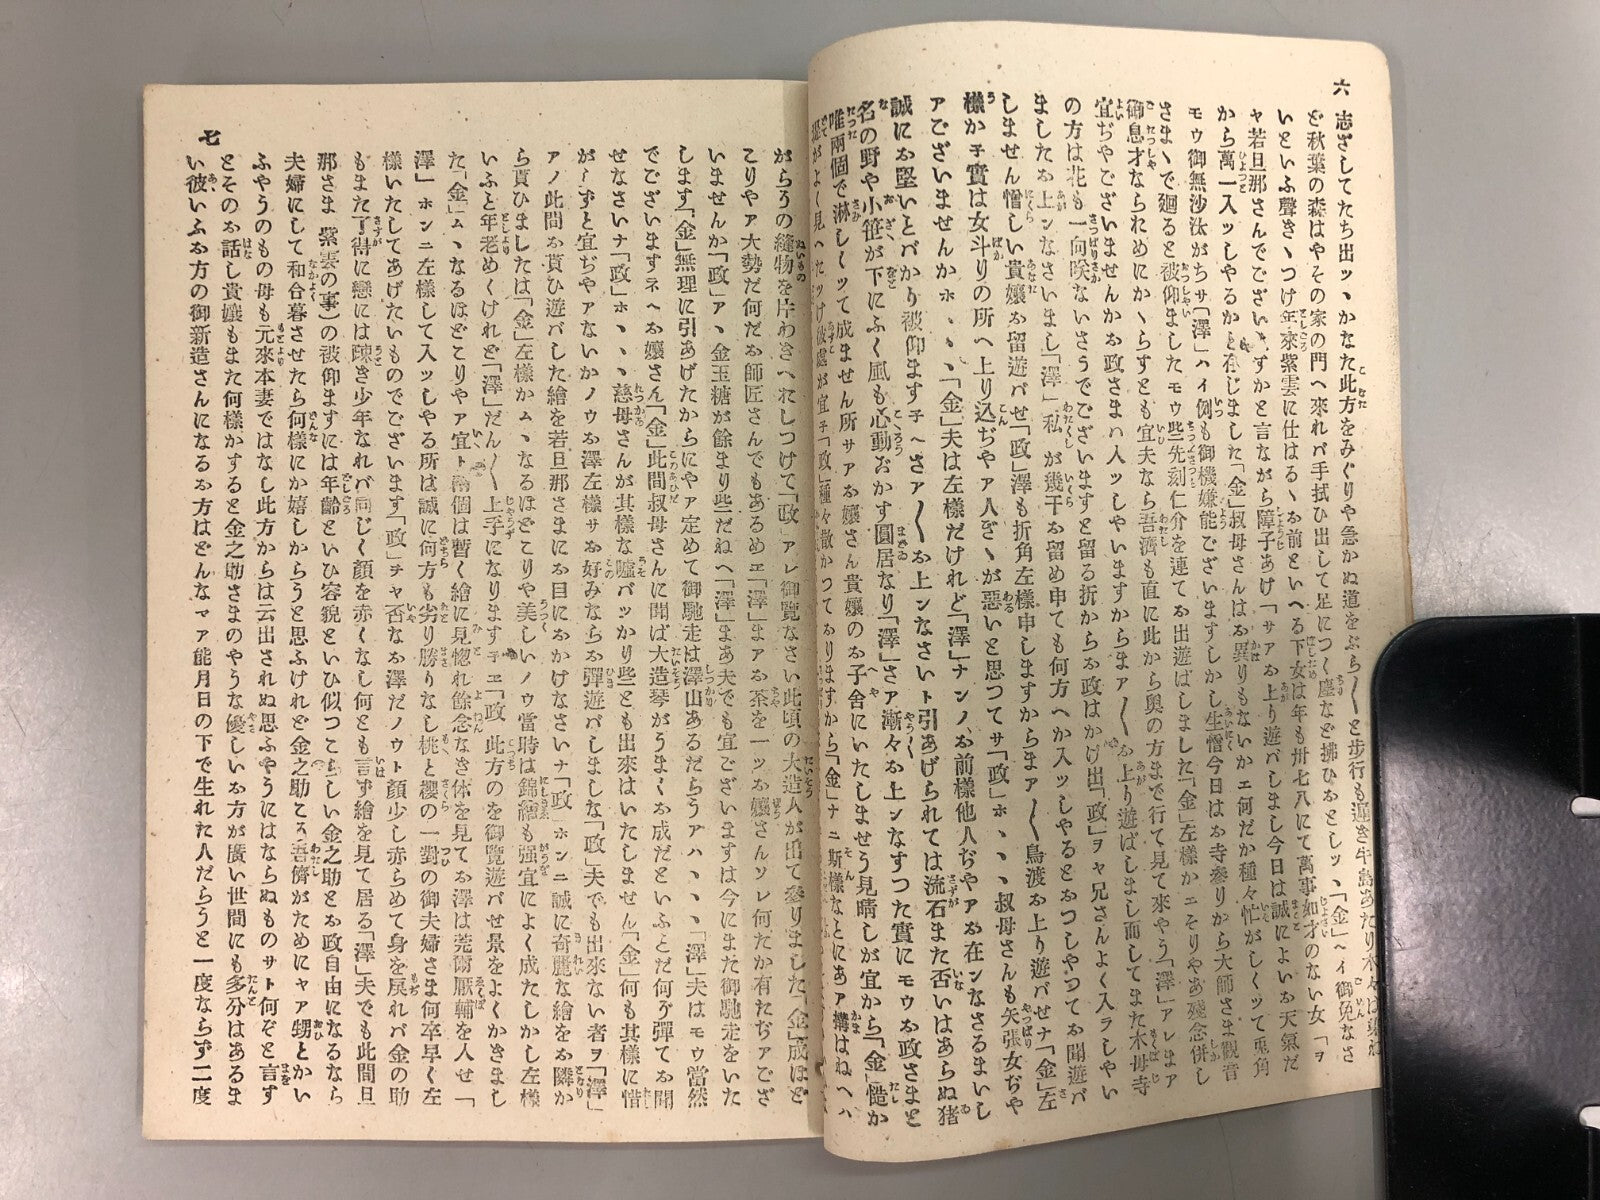 六
志ざしてたち出ツヽかなた此方をみぐりや急かぬ道をぶら〳〵と歩行も遲き牛島めたり木々は
ど秋葉の森はやその家の門へ來れバ手拭ひ出して足につく塵など拂ひおとしツヽ「金」ヘイ御免なさ
いといふ聲きヽつけ年來紫雲に仕はるヽお前といへる下女は年も卅七八にて萬事如才のない女「ヲ
ヤ若旦那さんでございますかと言ながら障子あけ「サアお上り遊バしまし今日は誠によいお天氣だ
から萬一入ツしやるかと存じました「金」叔母さんはお異りもないかエ何だか種々忙がしくツて兎角
モウ御無沙汰がちサ「澤」ハイ例も御機嫌能ございますしかし生憎今日はお寺參りから大師さま觀音
さまヽで廻ると被仰ましたモウ些先刻仁介を連てお出遊ばしました「金」左樣かエそりやあ殘念併し
御息才ならわめにかヽらずとも宜夫なら吾濟も直に此から奧の方まで行て見て來やう「澤」アレまア
宜ぢやございませんかお政さまハ入ツしやいますからまア〳〵お上り遊ばしまし而してまた木母寺
の方は花も一向咲ないさうでございますと留る折からお政はかけ出「政」ヲヤ兄さんよく入ラしやい
ましたお上ンなさいまし「澤」私が幾干お留め申ても何方へか入ツしやるとおつしやつてお聞遊バ
しません憎しい貴孃お留遊バせ「政」澤も折角左樣申しますからまア〳〵鳥渡お上り遊バせナ「金」左
樣か子實は女斗りの所へ上り込ぢやア人ぎヽが惡いと思つてサ「政」ホヽヽヽ叔母さんも矢張女ぢや
アございませんかホヽヽヽ「金」夫は左樣だけれど「澤」ナンノお前樣他人ぢやアお在ンなさるまいし
誠にお堅いとバかり被仰ます子ヘさア〳〵お上ンなさいト引あげられては流石また否いはあらぬ猪
名の野や小笹が下にふく風も心動おかす圓居なり「澤」さア漸々お上ンなすつた實にモウお政さまと
唯兩個で淋しくツて成ません所サアお孃さん貴孃のお子舍にいたしませう見晴しが宜から「金」慥か
がよく見へたツけ彼處が宜子「政」種々散かつてゐりますから「金」ナニ斯樣なとにあア搆はねへハ
七
がらうの縫物を片わきへれしつけて「政」アレ御覽なさい此頃の大造人が出て參りました「金」成ほど
こりやア大勢だ何だお師匠さんでもあるめエ「澤」まアお茶を一ツお孃さんソレ何たか有たぢアござ
いませんか「政」アヽ金玉糖が餘まり些だねヘ「澤」まあ夫でも宜ございますは今にまた御馳走をいた
します「金」無理に引あげたからにやア定めて御馳走は澤山あるだらうアハヽヽヽ「澤」夫はモウ當然
でございますネヘお孃さん「金」此間叔母さんに聞ば大造琴がうまくお成だといふとだ何ぞ彈てお聞
せなさいナ「政」ホヽヽヽ慈母さんが其樣な噓バツかり些とも出來はいたしません「金」何も其樣に惜
がらずと宜ぢやアないかノウお澤左樣サお好みならお彈遊バしましな「政」夫でも出來ない者ヲ「澤」
アノ此間お貰ひ遊バした繪を若旦那さまにお目におかけなさいナ「政」ホンニ誠に奇麗な繪をお隣か
ら貰ひましたは「金」左樣かムヽなるほどこりや美しいノウ當時は錦繪も强宜によく成たしかし左樣
いふと年老めくけれど「澤」だん〳〵上手になります子エ「政」此方のを御覽遊バせ景をよくかきまし
た「金」ムヽなるほどこりやア宜ト兩個は暫く繪に見惚れ餘念なき体を見てお澤は莞爾厭輔を人せ「
澤」ホンニ左樣して入ツしやる所は誠に何方も劣り勝りなし桃と櫻の一對の御夫婦さま何卒早く左
樣いたしてあげたいものでございます「政」チヤ否なお澤だノウト顏少し赤らめて身を戾れバ金の助
もまた了得に戀には疎き少年なれバ同じく顏を赤くなし何とも言ず繪を見て居る「澤」夫でも此間旦
那さま(紫雲の事)の被仰ますには年齡といひ容貌といひ似つこらしい金之助とお政自由になるなら
夫婦にして和合暮させたら何樣にか嬉しからうと思ふけれど金之助こそ吾儕がためにャア甥とかい
ふやうのもの母も元來本妻ではなし此方からは云出されぬ思ふやうにはならぬものサト何ぞと言ず
とそのお話し貴孃もまた何樣かすると金之助さまのやうな優しいお方が廣い世間にも多分はあるま
い彼いふお方の御新造さんになるお方はどんなマア能月日の下で生れた人だらうと一度ならず二度